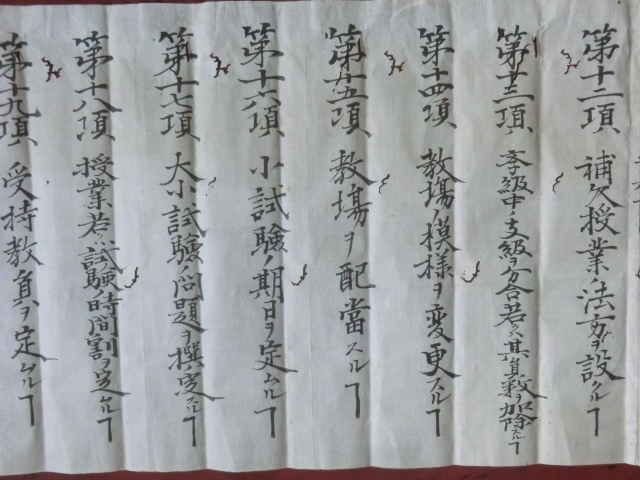 第十二項 補欠授業ノ法方ヲ設クルヿ
第十三項 季級中ノ支級ヲ分合若クハ其員数ヲ加除スルヿ
第十四項 教場ノ模様ヲ変更スルヿ
第十五項 教場ヲ配當スルヿ
第十六項 小試験ノ期日ヲ定ムルヿ
第十七項 大小試験ノ問題ヲ撰定スルヿ
第十八項 授業若クハ試験時間割ヲ定ムルヿ
第十九項 受持教員ヲ定ムルヿ